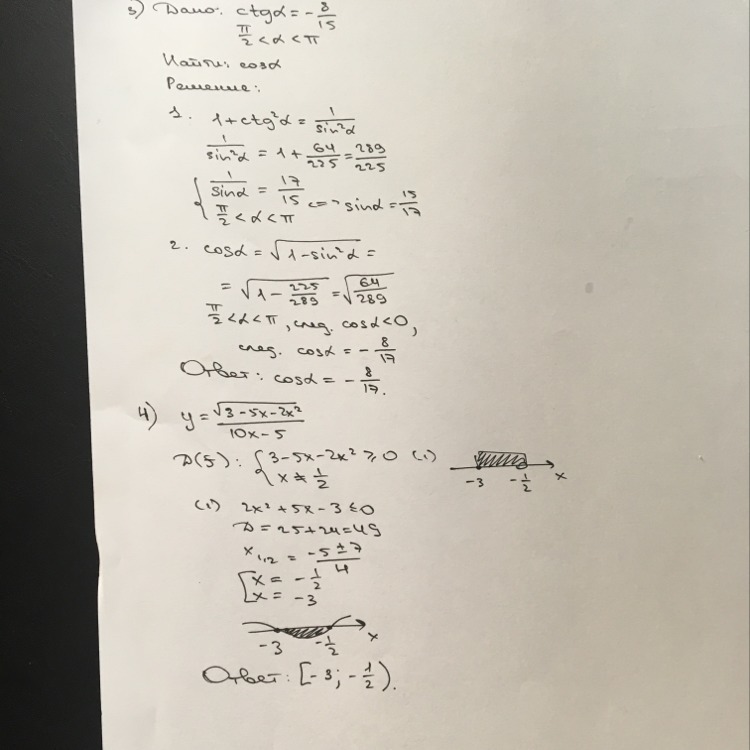 3) Дано: ctgα = -8/15
π/2 < α < π
Найти: cosα
Решение:
1. 1+ctg²α = 1/sin²α
1/sin²α = 1 + 64/225 = 289/225
{ 1/sinα = 17/15
π/2 < α < π <=> sinα = 15/17
2. cosα = √(1-sin²α) =
= √(1 - 225/289) = √(64/289)
π/2 < α < π, след. cosα < 0,
след. cosα = -8/17
Ответ: cosα = -8/17.
4) y = √(3-5x-2x²)/(10x-5)
D(y): { 3-5x-2x² ≥ 0 (1)
x ≠ 1/2
-3 -1/2 x
(1) 2x²+5x-3 ≤ 0
D = 25+24 = 49
x₁,₂ = (-5±7)/4
[ x = -1/2
x = -3
-3 -1/2 x
Ответ: [-3; -1/2).